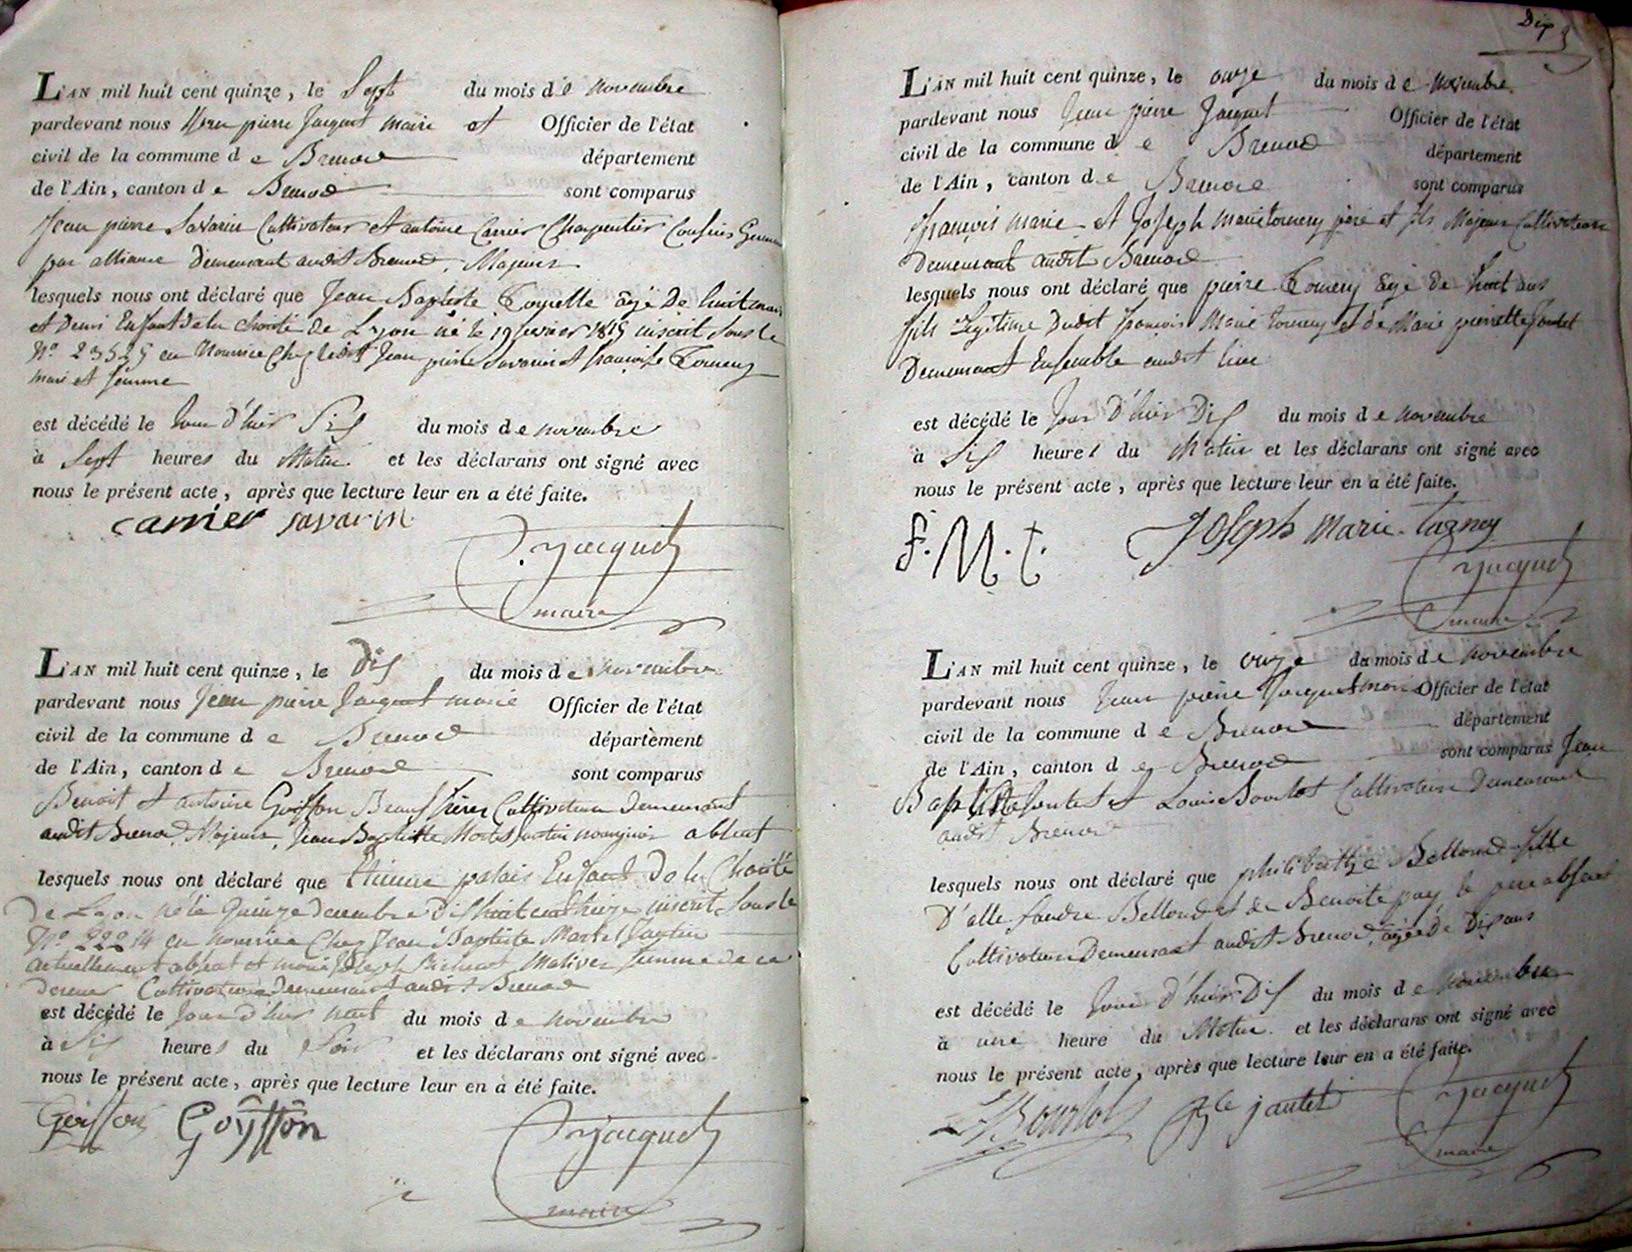 L'AN mil huit cent quinze, le Sept du mois de novembre
pardevant nous Jean pierre Jacquet maire et Officier de l'état
civil de la commune de Brenod département
de l'Ain, canton de Brenod sont comparus
Jean pierre Savarin Cultivateur et antoine Carrier Charpentier Cousins Germains
par alliance Demeurant audit Brenod, Majeurs
lesquels nous ont déclaré que Jean Baptiste Coquette âgé de huit mois
et Demi Enfant de la charité de Lyon né le 19 fevrier 1815 inscrit sous le
N° 23525 en Nourrice Chez ledit Jean pierre Savarin et françoise Tornery
mari et femme
est décédé le Jour d'hier Six du mois de novembre
à Sept heures du Matin et les déclarans ont signé avec
nous le présent acte, après que lecture leur en a été faite.
carrier savarin
Jacquet
maire
L'AN mil huit cent quinze, le Dix du mois de novembre
pardevant nous Jean pierre Jacquet maire Officier de l'état
civil de la commune de Brenod département
de l'Ain, canton de Brenod sont comparus
Benoit et antoine Goiffon Beaufreres Cultivateurs Demeurant
audit Brenod, Majeurs, Jean Baptiste absent
lesquels nous ont déclaré que Etienne palais Enfant de la Charité
De Lyon né le Quinze decembre Dix huit cent treize inscrit Sous le
N° 22214 en nourrice Chez Jean Baptiste Martel
actuellement absent et femme de ce
dernier Cultivateurs demeurant audit Brenod
est décédé le Jour d'hier neuf du mois de novembre
à Six heures du Soir et les déclarans ont signé avec
nous le présent acte, après que lecture leur en a été faite.
Goiffon Goÿffôn
Jacquet
maire
Dix
L'AN mil huit cent quinze, le onze du mois de novembre
pardevant nous Jean pierre Jacquet Officier de l'état
civil de la commune de Brenod département
de l'Ain, canton de Brenod sont comparus
françois marie et Joseph marie tornery père et fils Majeurs Cultivateurs
Demeurant audit Brenod
lesquels nous ont déclaré que pierre Tornery âgé de huit ans
fils Légitime Dudit françois Marie Tornery et de Marie pierrette
Demeurant Ensemble audit lieu
est décédé le Jour d'hier Dix du mois de novembre
à Six heures du Matin et les déclarans ont signé avec
nous le présent acte, après que lecture leur en a été faite.
F.M.t. Joseph marie torney
Jacquet
maire
L'AN mil huit cent quinze, le onze du mois de novembre
pardevant nous Jean pierre Jacquet maire Officier de l'état
civil de la commune de Brenod département
de l'Ain, canton de Brenod sont comparus Jean
Baptiste et Louis Bourlot Cultivateurs Demeurant
audit Brenod
lesquels nous ont déclaré que philiberthe Bellond fille
D'allexandre Bellond et de Benoite pay le pere absent
Cultivateurs Demeurant audit Brenod, âgée de Dix ans
est décédé le Jour d'hier Dix du mois de novembre
à une heure du Matin et les déclarans ont signé avec
nous le présent acte, après que lecture leur en a été faite.
Bourlot jantet
Jacquet
maire